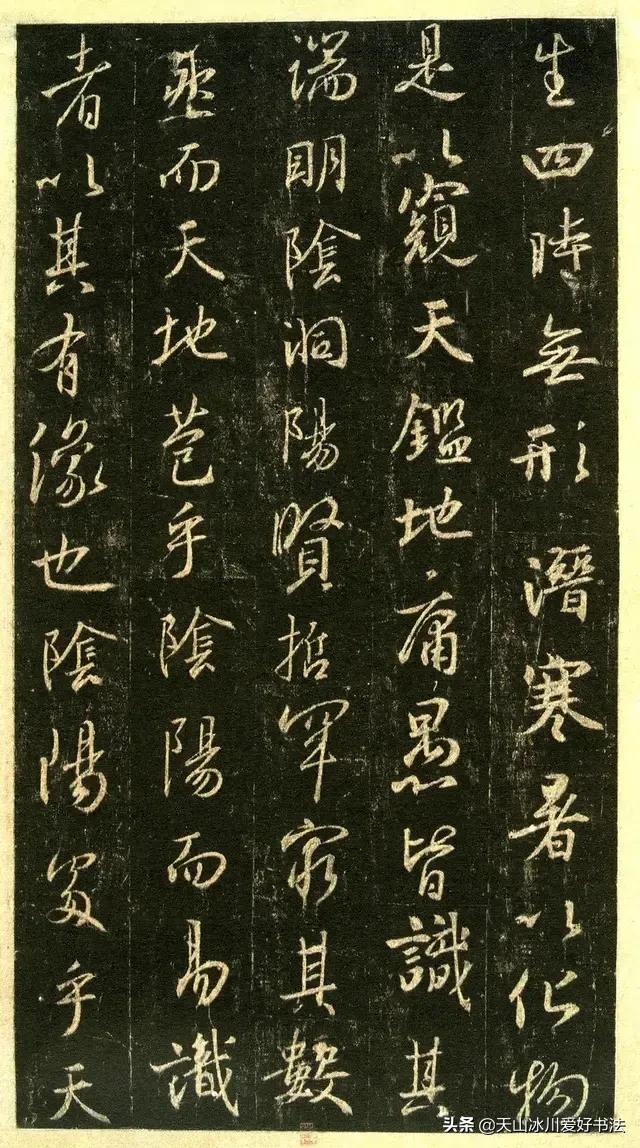 生四時無形潛寒暑以化物
是以窺天鑑地庸愚皆識其
端明陰洞陽賢哲罕窮其數
然而天地苞乎陰陽而易識
者以其有像也陰陽處乎天
头条 @天山冰川爱好书法